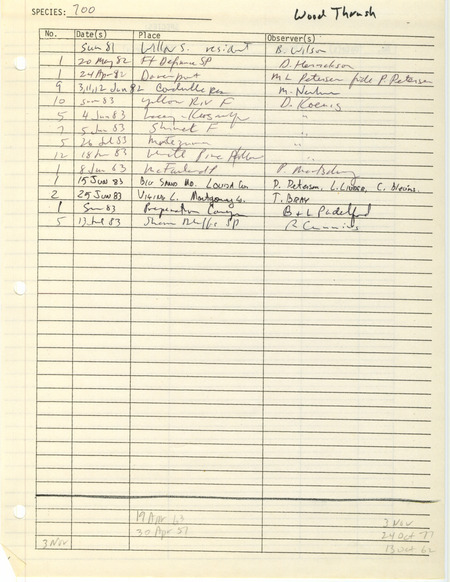 SPECIES: 700 Wood Thrush
No. Date(s) Place Observer(s)
Sum 81 Willow S. resident B. Wilson
1 20 May 82 Ft Defiance SP D. Harrickson
1 24 Apr 82 Davenport M L Petersen fide P Petersen
9 3,11,12 Jun 82 Coralville Res M. Newlon
10 Sum 83 Yellow Riv F D. Koenig
5 4 Jun 83 Lacey-Keosauqua "
7 5 Jun 83 Shimek F "
5 26 Jul 83 Montezuma "
12 18 Jun 83 White Pine Hollow "
1 8 Jun 63 McFarland P
1 15 Jun 83 Big Sand Mo. Louisa Co. D. Petersen, L. Linder, C. Blevins.
2 25 Jun 83 Viking L. Montgomery Co. T. Bray
1 Sum 83 Preparation Canyon B & L Padelford
5 13 Jul 83 Sham Bluffs SP R Cummins
19 Apr 63 3 Nov
30 Apr 57 24 Oct 77
3 Nov 13 Oct 62